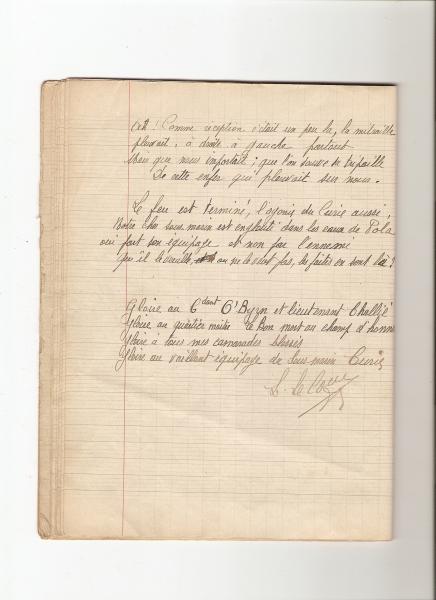 Ah ! Comme réception c'était un peu là, la mitraille
pleuvait, à droite à gauche partout
bien que nous importait ; que l'on sauve
De cette enfer qui pleuvait sur nous.
Le feu est terminé, l'agonie du Curie aussi,
Notre cher sous marin est englouti dans les eaux de Pola
oui fait son équipage et non par l'ennemi
qu'il le veuille, ou ne le veut pas, les faites en sont là ?
Gloire au Cdant O'Byrn et lieutenant Challié
Gloire au quartier maître Le Bon mort au champ d'honn
Gloire à tous mes camarades blessés
Gloire au vaillant équipage de Sous marin Curie